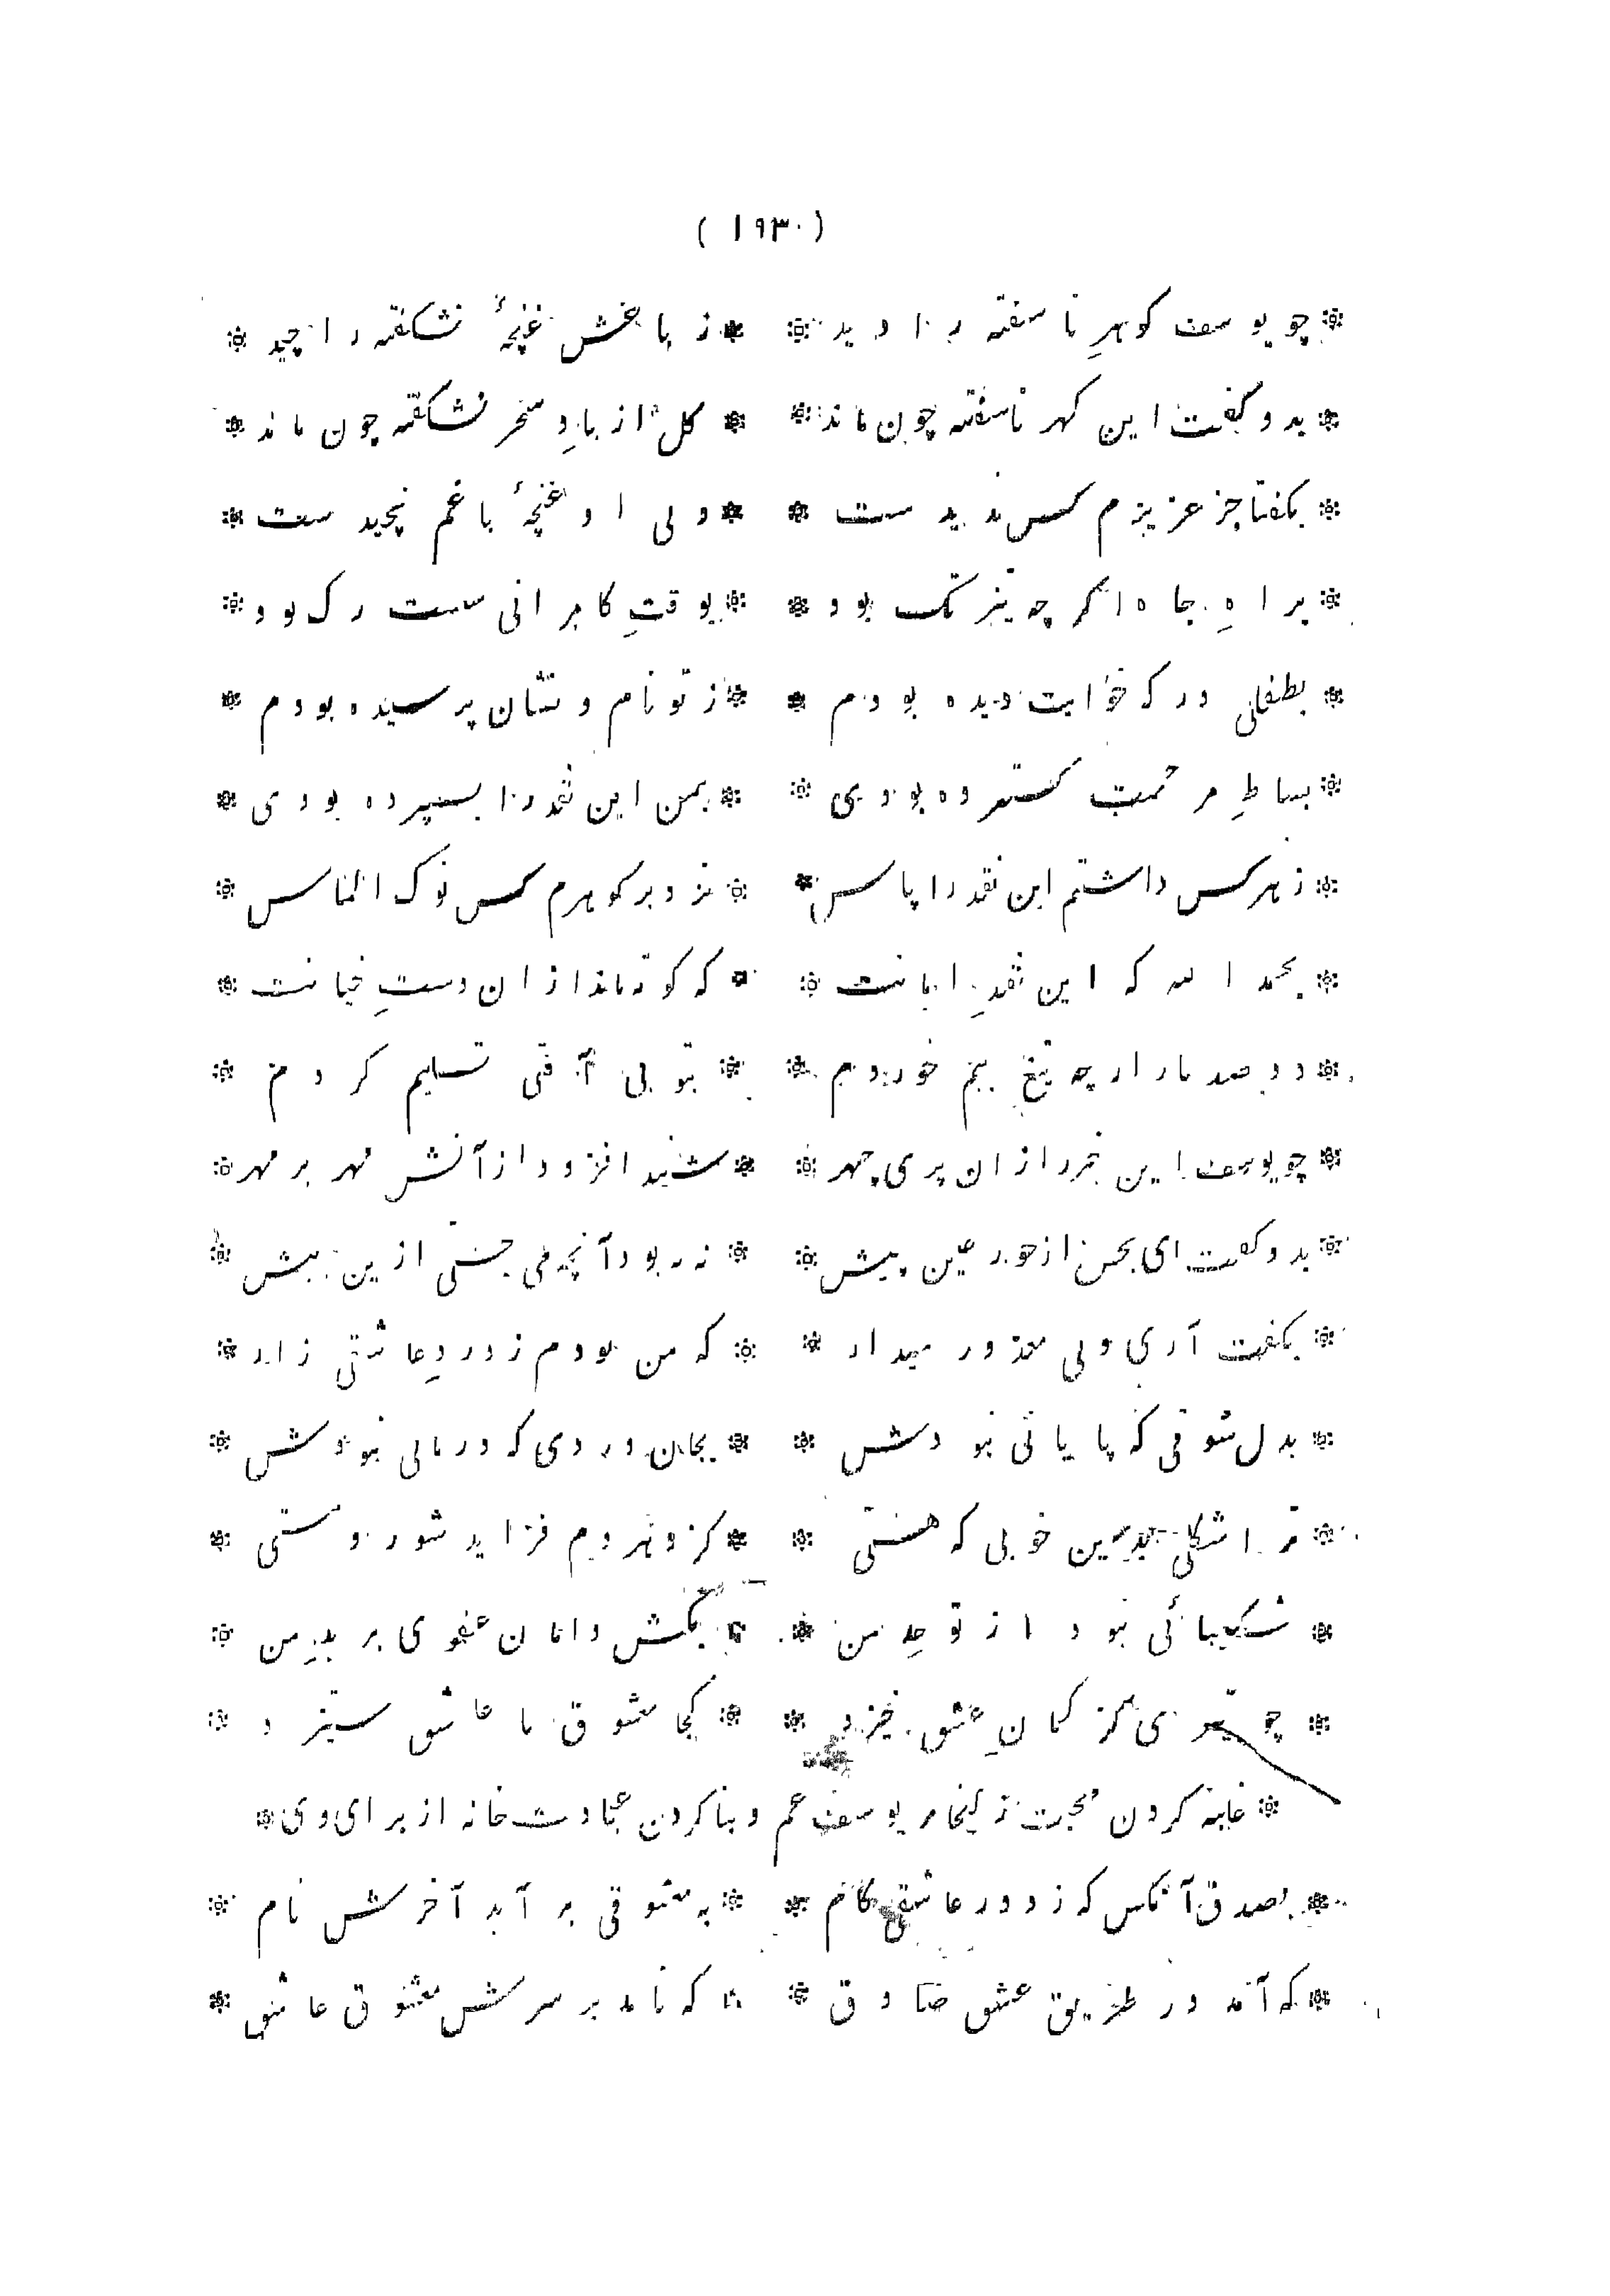 (۱۹۳۰)
چو یوسف کوهرِ نا سفته را دید * ز باغش غنچهٔ نشکفته را چید
بدو گفت این کهر ناسفته چون ماند * کل از بادِ سحر نشکفته چون ماند
بکفتا جز عزیزم کس ندیدست * ولی او غنچهٔ باغم نچیدست
براهِ جاه اکرچه تیزتک بود * بوقتِ کامرانی سست رک بود
بطفلی در که خوابت دیده بودم * ز تو نام و نشان پرسیده بودم
بساطِ مرحمت کسترده بودی * بمن این نقد را بسپرده بودی
ز هرکس داشتم این نقد را پاس * نزد بر کوهرم کس نوک الماس
بحمد الله که این نقدِ امانت * که کوته ماند ازان دستِ خیانت
دو صد بار ارچه تیغ بیم خوردم * بتو بی آفتی تسلیم کردم
چو یوسف این خبر ازان پری چهر * شنید افزود از آنش مهر بر مهر
بدو کفت ای بحسن از حور عین پیش * نه به بود آنچه می جستی ازین پیش
بکفت آری ولی معذور میدار * که من بودم ز دردِ عاشقی زار
بدل شوقی که پایانی نبودش * بجان دردی که درمانی نبودش
ترا شکلی بدین خوبی که هستی * کزو هر دم فزاید شور و مستی
شکیبائی نبود از تو حدِ من * بکش دامان عفوی بر بدِ من
چو حرفی کز کمانِ عشق خیزد * کجا معشوق با عاشق ستیزد
غلبه کردن محبت زلیخا بر یوسف عم و بنا کردن عبادت خانه از برای وی
بصدق آنکس که زد در عاشقی کام * به معشوقی بر آید آخرش نام
که آمد در طریق عشق صادق * که نامد بر سرش معشوق عاشق